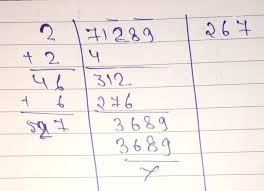 2 71289 267
+ 2 4
46 312
+ 6 276
527 3689
3689
x